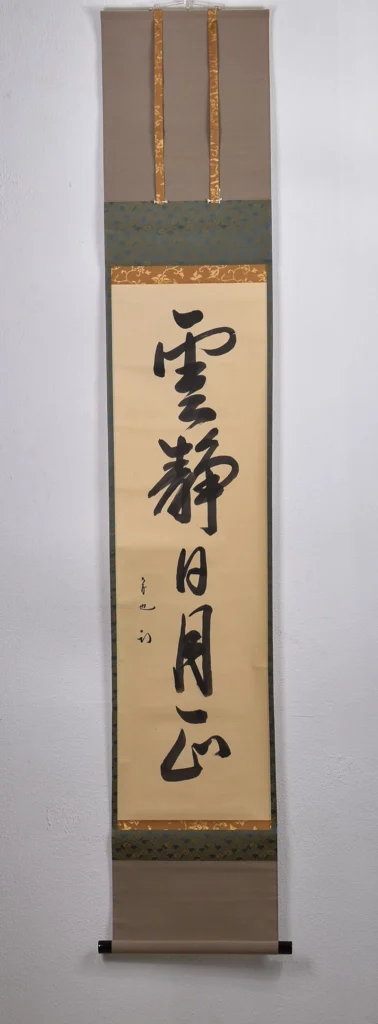 雲静日月正